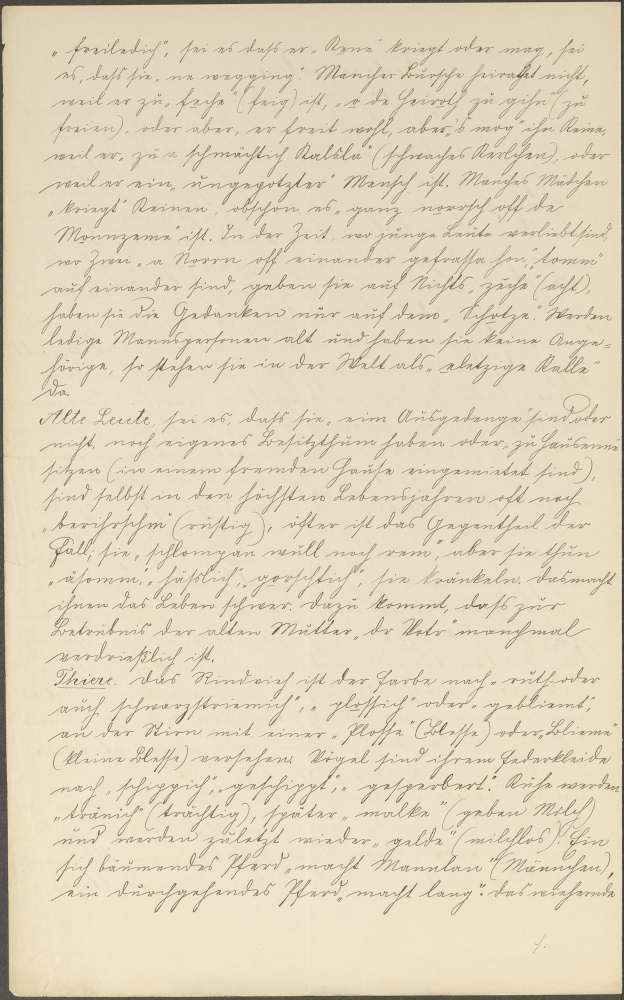 „freiledich", sei es daſs er „Kene" kriegt oder mag, sei
es, daſs sie „ne wegging". Mancher Bursche heirathet nicht,
weil er zu „feche" (feig) ist, „o de Heiroth zu gihn" (zu
freien), oder aber, er freit wohl, aber „'s mog" ihn Keine,
weil er „zu a schmächtich Kalsla" (schwaches Kerlchen), oder
weil er ein „ungegotzter" Mensch ist. Manches Mädchen
„kriegt" Keinen, obschon es „ganz norrsch off de
Monnzeme" ist. In der Zeit, wo junge Leute verliebt sind,
wo Zwei „a Norrn off einander gefrassa hon", „tomm"
auf einander sind, geben sie auf Nichts „zuche" (acht),
haben sie die Gedanken nur auf dem „Schotze". Werden
ledige Mannspersonen alt und haben sie keine Ange=
hörige, so stehen sie in der Welt als „eletzige Kalle"
da.
Alte Leute, sei es, daſs sie „eim Ausgedenge" sind, oder
nicht, noch eigenes Besitzthum haben oder „zu Hausenne"
sitzen (in einem fremden Hause eingemietet sind),
sind selbst in den höchsten Lebensjahren oft noch
„berihrschm" (rüstig), öfter ist das Gegentheil der
Fall; sie „schlompan wull noch rem", aber sie thun
„äsomm", „häſslich", „gorschtich", sie kränkeln. Das macht
ihnen das Leben schwer. Dazu kommt, daſs zur
Betrübnis der alten Mutter „dr Votr" manchmal
verdrieſslich ist.
Thiere. Das Rindvieh ist der Farbe nach „ruth- oder
auch schwarzstriemich", „plossich" oder „gebliemt",
an der Stirn mit einer „Plosse" (Blesse) oder „Blieme"
(kleine Blesse) versehen. Vögel sind ihrem Federkleide
nach „schippich", „geschippt", „gesperbert". Kühe werden
„tränich" (trächtig), später „malke" (geben Milch)
und werden zuletzt wieder „gelde" (milchlos). Ein
sich bäumendes Pferd „macht Mannlan" (Männchen),
ein durchgehendes Pferd „macht lang". Das wiehernde